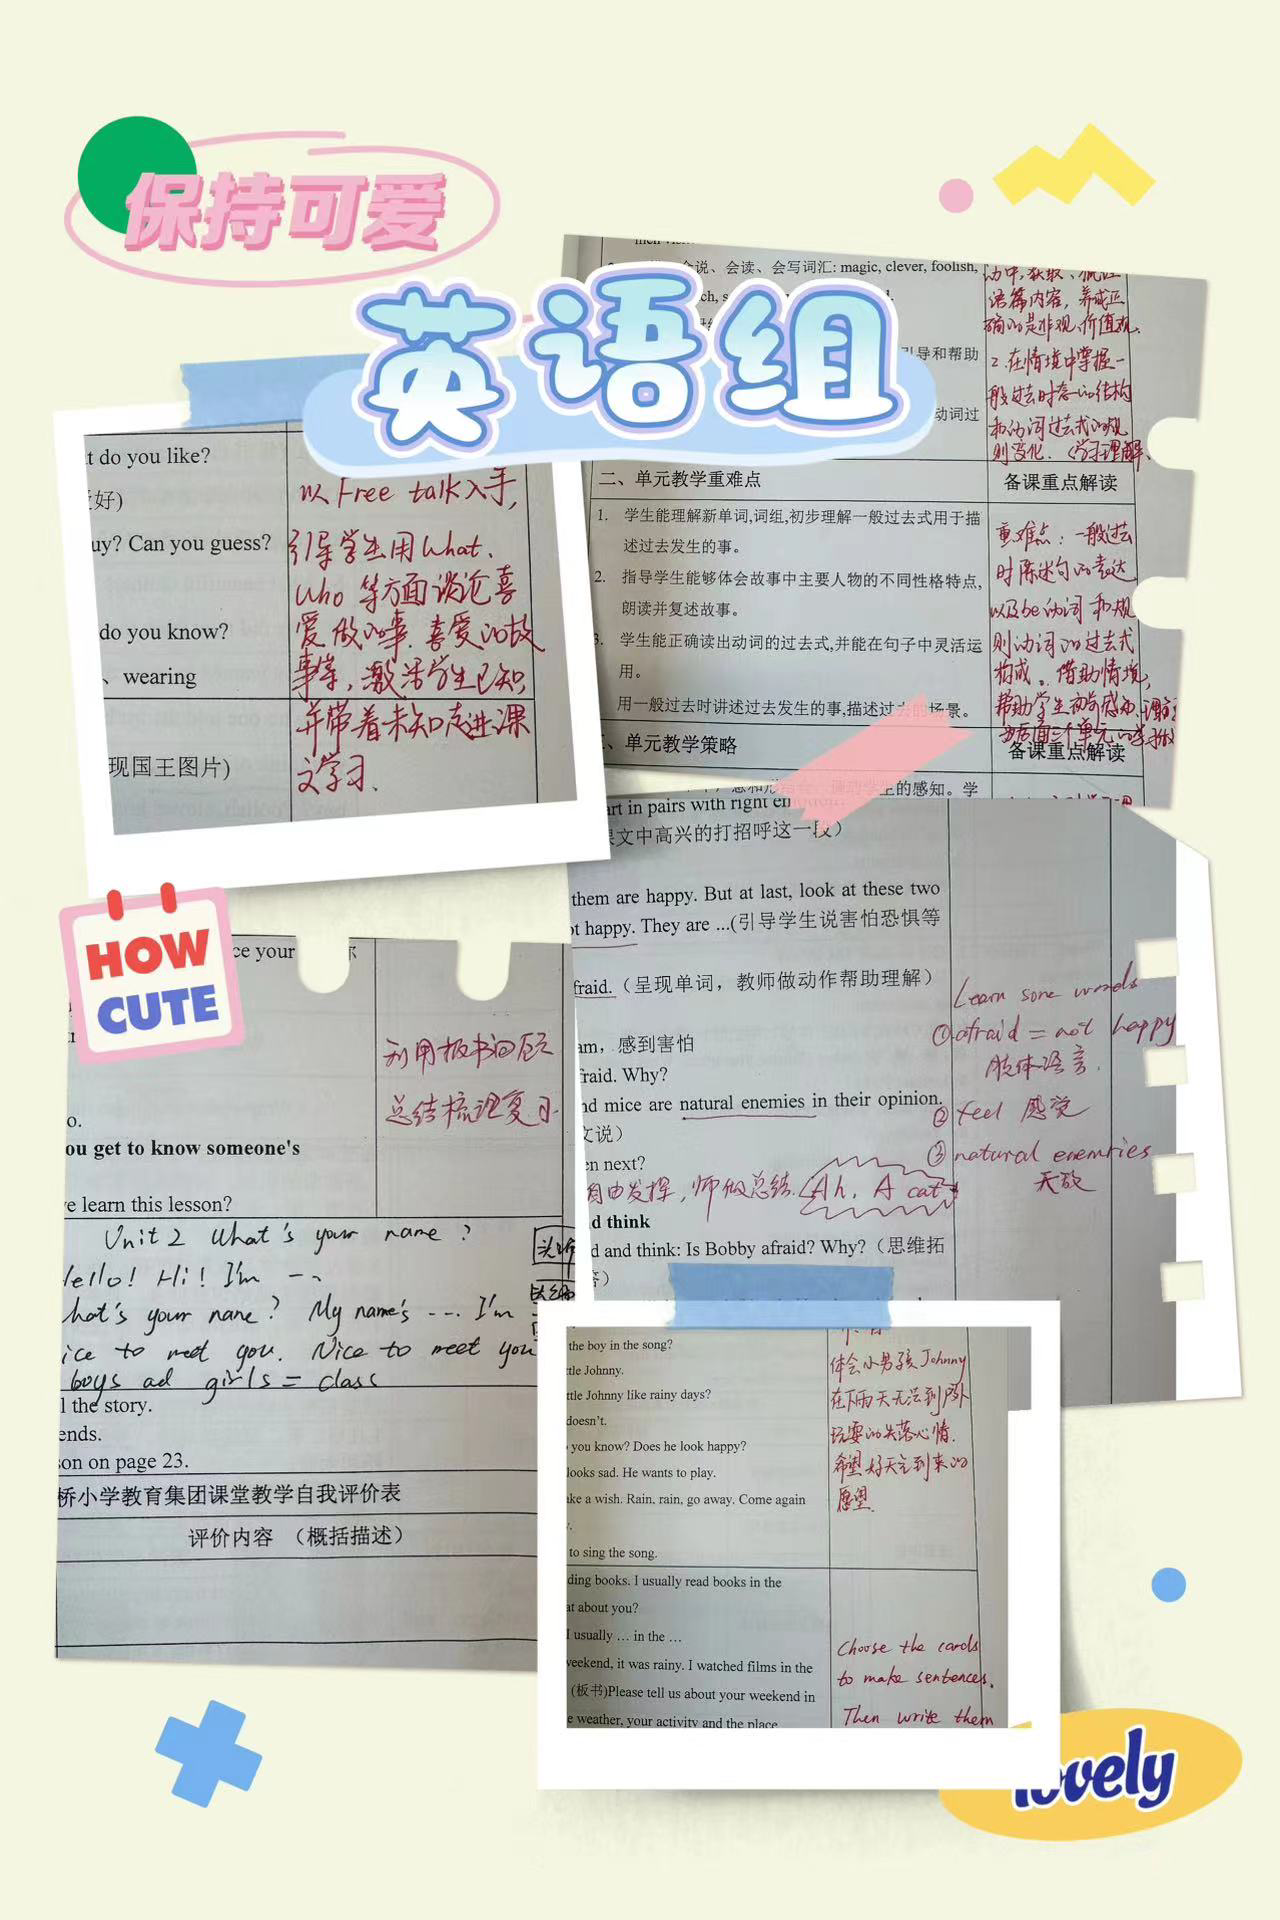 保持可爱
英语组
t do you like?
好)
uy? Can you guess?
do you know?
、wearing
现国王图片)
以 Free talk 入手,
引导学生用 What、
Who 等方面谈论喜
爱做的事、喜爱的故
事等,激活学生已知,
并带着未知走进课
文学习.
会说、会读、会写词汇: magic, clever, foolish,
引导和帮助
动词过
语篇内容, 养成正
确的是非观、价值观.
2.在情境中掌握一
般过去时态的结构
和动词过去式的规
则变化. (学习理解、
二、单元教学重难点
备课重点解读
1. 学生能理解新单词,词组,初步理解一般过去式用于描
述过去发生的事。
2. 指导学生能够体会故事中主要人物的不同性格特点,
朗读并复述故事。
3. 学生能正确读出动词的过去式,并能在句子中灵活运
用。
用一般过去时讲述过去发生的事,描述过去的场景。
重难点: 一般过去
时陈述句的表达
以及be动词和规
则动词的过去式
构成。借助情境,
帮助学生初步感知、理解
为后面三个单元的学
三、单元教学策略
备课重点解读
学生的感知。学
art in pairs with right emotion.
课文中高兴的打招呼这一段)
them are happy. But at last, look at these two
ot happy. They are ...(引导学生说害怕恐惧等
fraid.(呈现单词,教师做动作帮助理解)
am, 感到害怕
fraid. Why?
nd mice are natural enemies in their opinion.
文说)
en next?
自由发挥, 师做总结. Ah, A cat
nd think
d and think: Is Bobby afraid? Why?(思维拓
答)
Learn some words
①afraid = not happy
肢体语言.
② feel 感觉
③ natural enemies
天敌
HOW
CUTE
ce your
o.
ou get to know someone's
ve learn this lesson?
利用板书回顾
总结梳理复习.
Unit 2 What's your name ?
Hello! Hi! I'm --
hat's your name? My name's --- I'm
ice to meet you. Nice to meet you
boys ad girls = class
l the story.
ends.
son on page 23.
桥小学教育集团课堂教学自我评价表
评价内容 (概括描述)
the boy in the song?
ttle Johnny.
ttle Johnny like rainy days?
doesn't.
you know? Does he look happy?
looks sad. He wants to play.
ake a wish. Rain, rain, go away. Come again
to sing the song.
体会小男孩Johnny
在下雨天无法到户外
玩耍的失落心情.
希望好天气到来的
愿望.
ding books. I usually read books in the
at about you?
I usually … in the …
weekend, it was rainy. I watched films in the
(板书)Please tell us about your weekend in
e weather, your activity and the place
Choose the cards
to make sentences.
Then write them
lovely